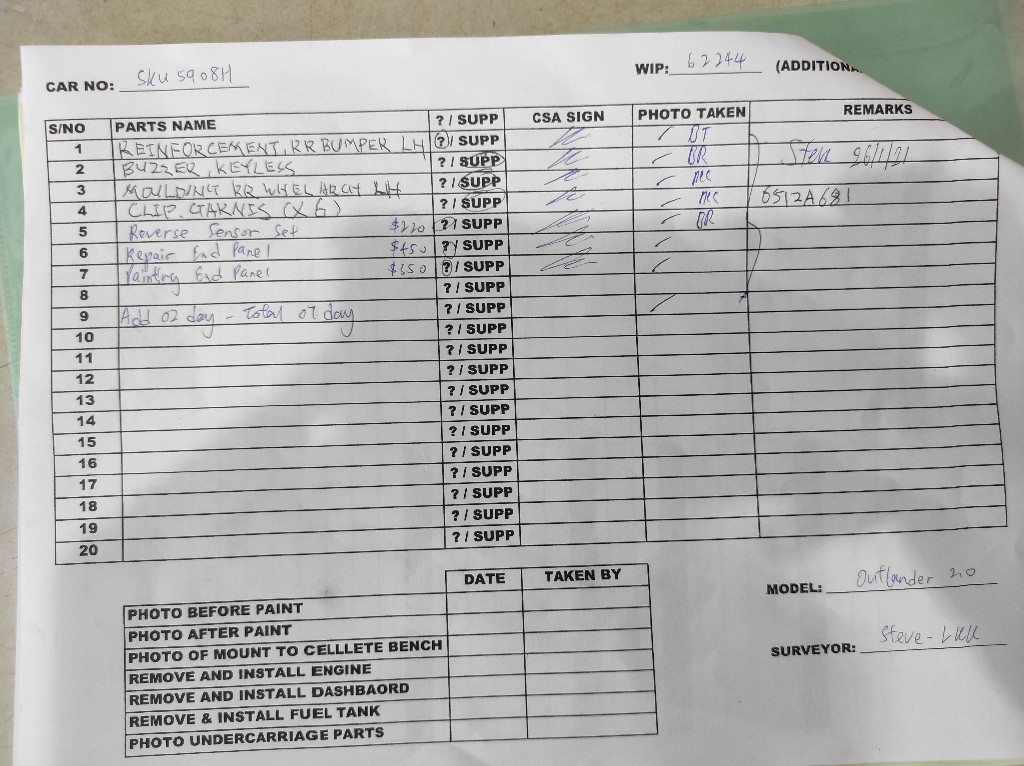 CAR NO: SKU 5908H
WIP: 62244 (ADDITIONA
S/NO PARTS NAME ? / SUPP CSA SIGN PHOTO TAKEN REMARKS
1 REINFORCEMENT, RR BUMPER LH ? / SUPP DT
2 BUZZER, KEYLESS ? / SUPP BR 26/1/21
3 MOULDING RR WHEL ARCH LH ? / SUPP MC
4 CLIP GARNIS (X6) ? / SUPP MC 6512A681
5 Reverse Sensor Set $220 ? / SUPP BR
6 Repair End Panel $450 ? / SUPP
7 Painting End Panel $650 ? / SUPP
8 ? / SUPP
9 Add 02 day - Total 07 day ? / SUPP
10 ? / SUPP
11 ? / SUPP
12 ? / SUPP
13 ? / SUPP
14 ? / SUPP
15 ? / SUPP
16 ? / SUPP
17 ? / SUPP
18 ? / SUPP
19 ? / SUPP
20 ? / SUPP
DATE TAKEN BY
PHOTO BEFORE PAINT
PHOTO AFTER PAINT
PHOTO OF MOUNT TO CELLLETE BENCH
REMOVE AND INSTALL ENGINE
REMOVE AND INSTALL DASHBAORD
REMOVE & INSTALL FUEL TANK
PHOTO UNDERCARRIAGE PARTS
MODEL: Outlander 2.0
SURVEYOR: Steve - LKK